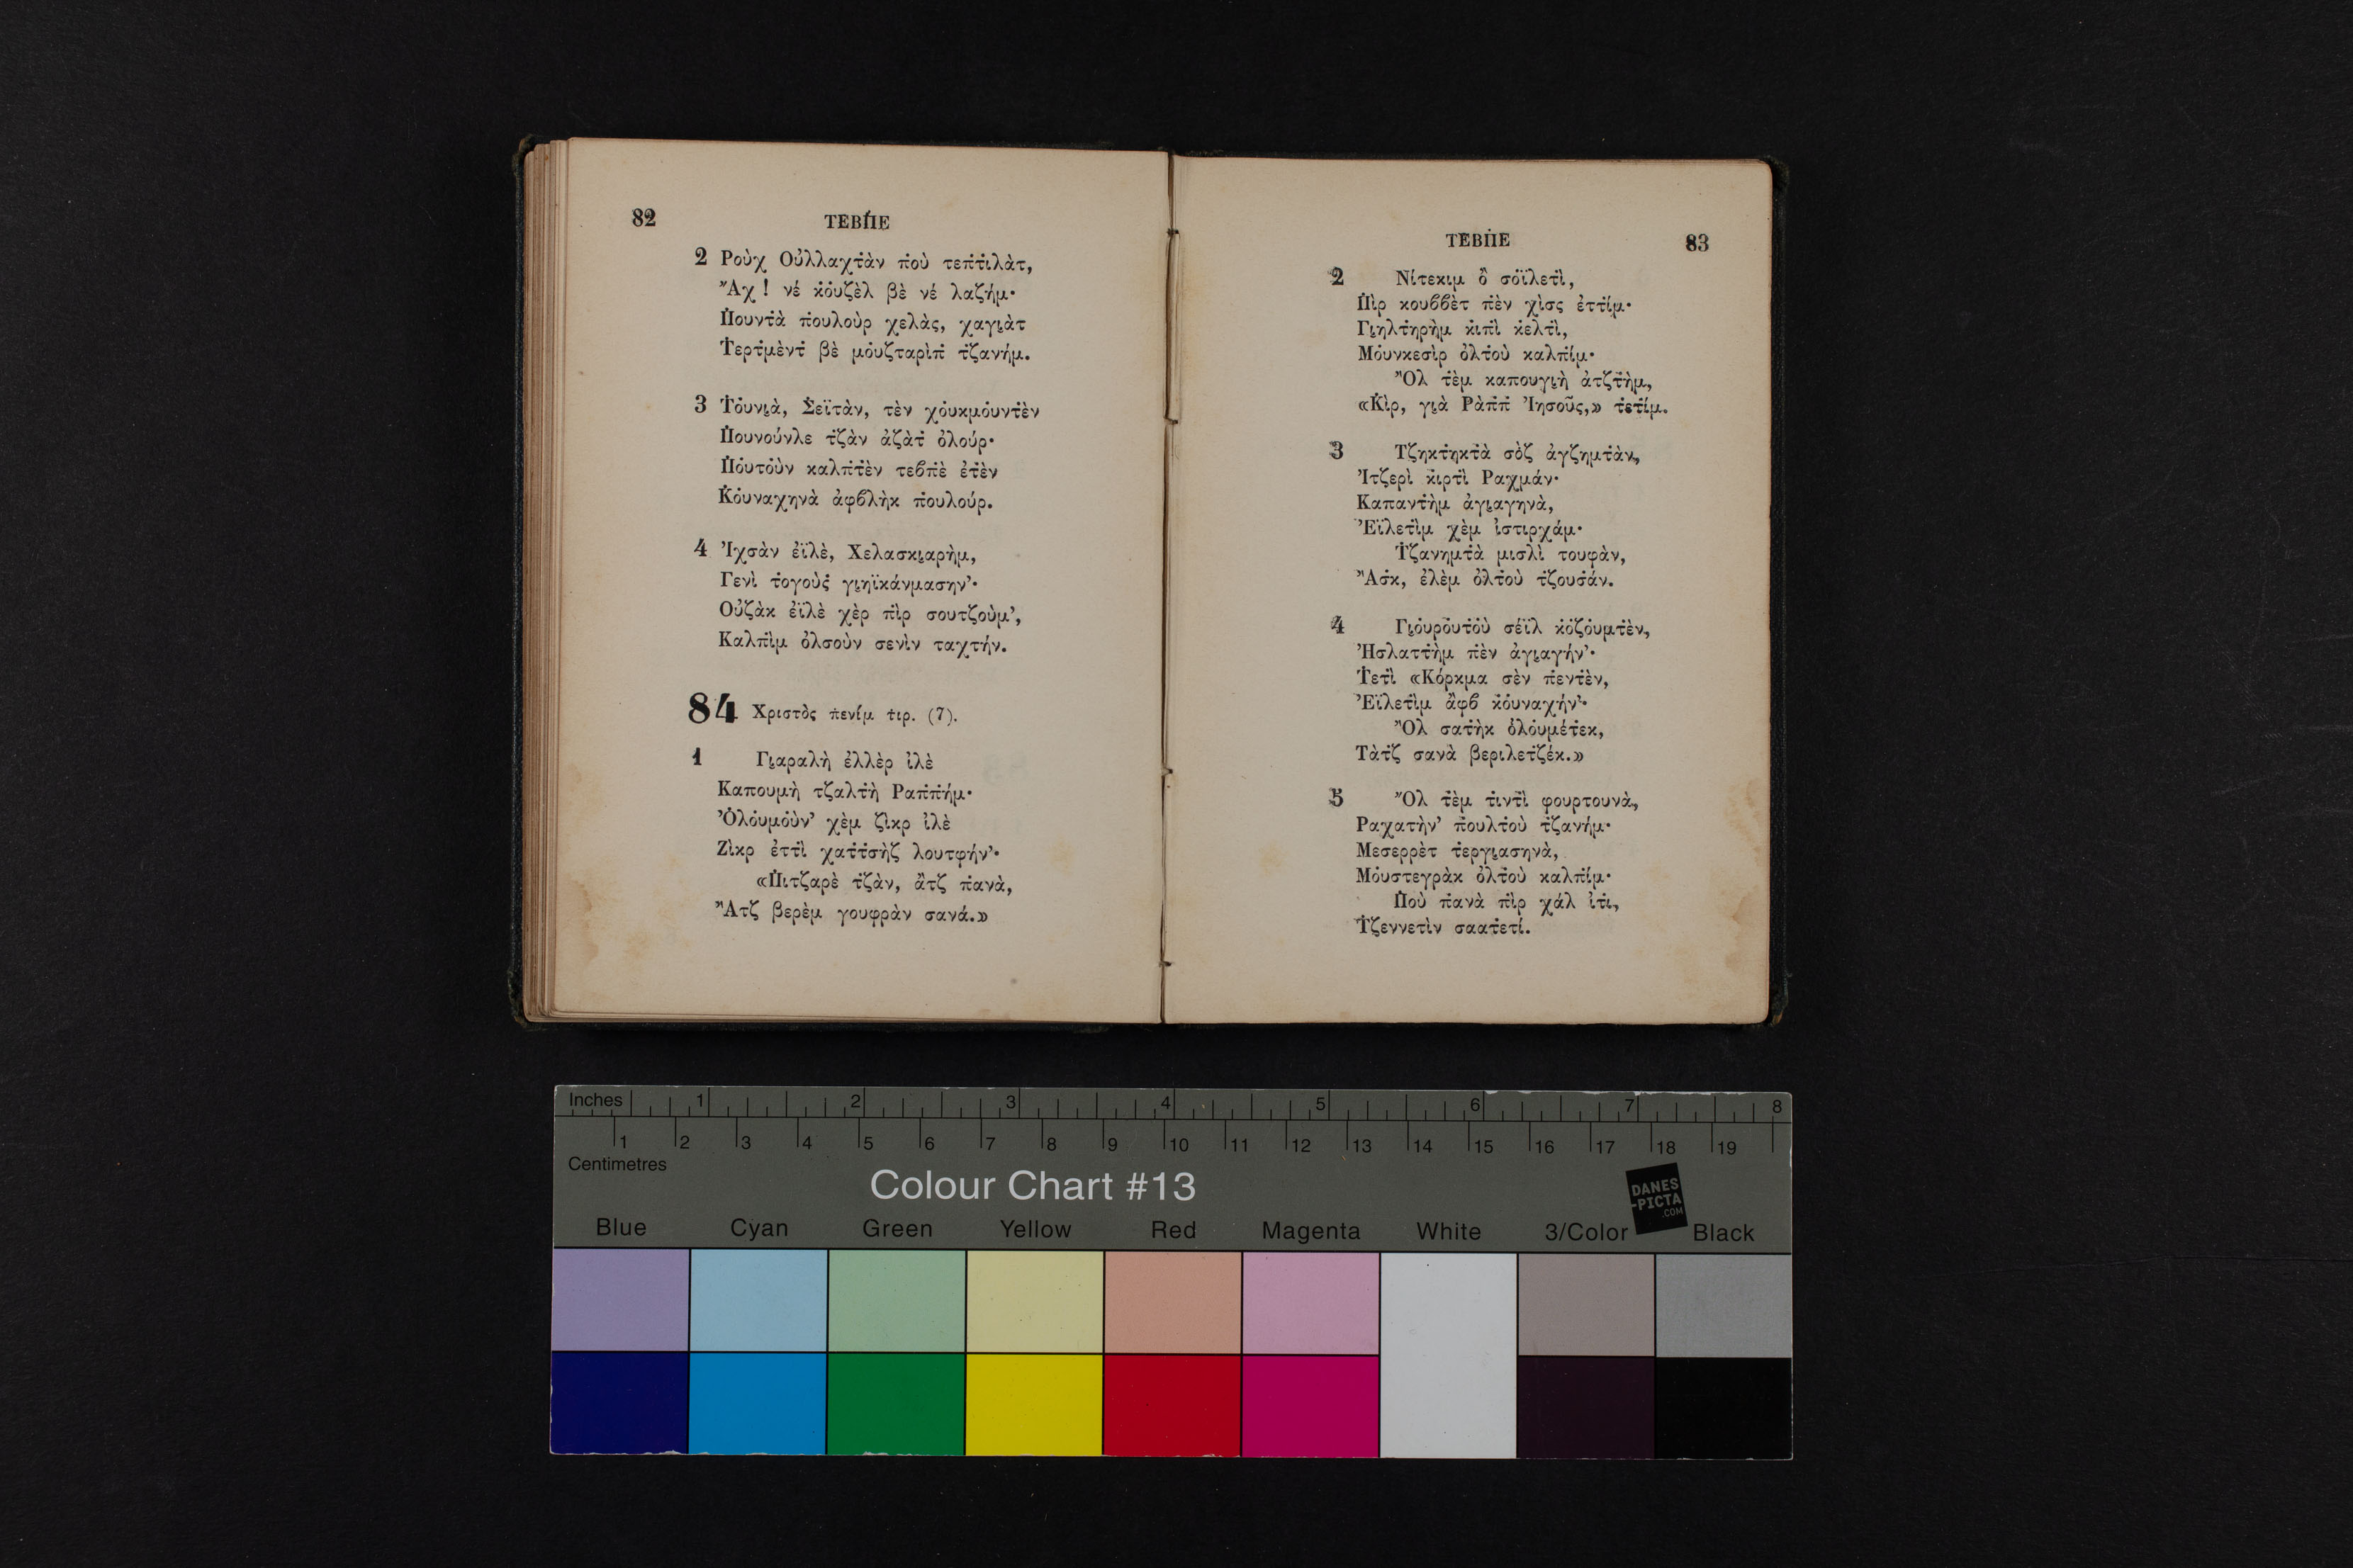 82
ΤΕΒΠ̇Ε
2 Ροὺχ Οὐλλαχτ̇ὰν π̇οὺ τεπ̇τ̇ιλὰτ,
Ἂχ ! νέ κ̇ὀυζὲλ βὲ νέ λαζήμ·
Π̇ουντ̇ὰ π̇ουλοὺρ χελὰς, χαγι̯ὰτ
Τ̇ερτ̇μὲντ̇ βὲ μὀυζταρὶπ̇ τ̇ζανήμ.
3 Τ̇ὀυνι̯ὰ, Σ̇εϊτὰν, τὲν χὀυκμὀυντ̇ὲν
Π̇ουνούνλε τ̇ζὰν ἀζὰτ̇ ὀλούρ·
Π̇ὀυτ̇οὺν καλπ̇τ̇ὲν τεϐπ̇ὲ ἐτὲν
Κ̇ὀυναχηνὰ ἀφϐλὴκ π̇ουλούρ.
4 Ἰχσὰν ἐϊλὲ, Χελασκι̯αρὴμ,
Γενὶ τ̇ογοὺς̇ γι̯ηϊκάνμασην’·
Οὐζὰκ ἐϊλὲ χὲρ π̇ὶρ σουτζοὺμ’,
Καλπ̇ὶμ ὀλσοὺν σενὶν ταχτήν.
84 Χριστὸς π̇ενίμ τ̇ιρ. (7).
1 Γι̯αραλὴ ἐλλὲρ ἰλὲ
Καπουμὴ τζαλτ̇ὴ Ραπ̇π̇ήμ·
Ὀλὀυμοὺν’ χὲμ ζὶκρ ἰλὲ
Ζὶκρ ἐττὶ χατ̇τ̇σὴζ λουτφήν’·
«Π̇ιτζαρὲ τ̇ζὰν, ἂτζ π̇ανὰ,
Ἂτζ βερὲμ γουφρὰν σανά.»
ΤΕΒΠ̇Ε
83
2 Νίτεκιμ ὂ σὀϊλετ̇ὶ,
Π̇ὶρ κουϐϐὲτ π̇ὲν χὶσς ἐττίμ·
Γι̯ηλτ̇ηρὴμ κ̇ιπ̇ὶ κ̇ελτ̇ὶ,
Μὀυνκεσὶρ ὀλτ̇οὺ καλπ̇ίμ·
Ὂλ τ̇ὲμ καπουγι̯ὴ ἀτζτ̇ὴμ,
«Κ̇ὶρ, γι̯ὰ Ρὰπ̇π̇ Ἰησοῦς,» τ̇ετ̇ίμ.
3 Τζηκτ̇ηκτ̇ὰ σὸζ ἀγζημτ̇ὰν,
Ἰτζερὶ κ̇ιρτ̇ὶ Ραχμάν·
Καπαντ̇ὴμ ἀγι̯αγηνὰ,
Ἐϊλετ̇ὶμ χὲμ ἰστιρχάμ·
Τ̇ζανημτ̇ὰ μισλὶ τουφὰν,
Ἂσ̇κ, ἐλὲμ ὀλτ̇οὺ τ̇ζουσ̇άν.
4 Γι̯ὀυρὀυτ̇οὺ σέϊλ κ̇ὀζὀυμτ̇ὲν,
Ἠσλαττ̇ὴμ π̇ὲν ἀγι̯αγήν’·
Τ̇ετ̇ὶ «Κόρκμα σὲν π̇εντ̇ὲν,
Ἐϊλετ̇ὶμ ἂφϐ κ̇ὀυναχήν’·
Ὂλ σατ̇ὴκ ὀλὀυμέτ̇εκ,
Τὰτ̇ζ σανὰ βεριλετ̇ζέκ.»
5 Ὂλ τ̇ὲμ τ̇ιντ̇ὶ φουρτουνὰ,
Ραχατὴν’ π̇ουλτ̇οὺ τ̇ζανήμ·
Μεσερρὲτ τ̇εργι̯ασηνὰ,
Μὀυστεγρὰκ ὀλτ̇οὺ καλπ̇ίμ·
Π̇οὺ π̇ανὰ π̇ὶρ χάλ ἰτ̇ι,
Τ̇ζεννετὶν σαατ̇ετί.
Inches 1 2 3 4 5 6 7 8
1 2 3 4 5 6 7 8 9 10 11 12 13 14 15 16 17 18 19
Centimetres
Colour Chart #13
DANES
-PICTA
.COM
Blue Cyan Green Yellow Red Magenta White 3/Color Black